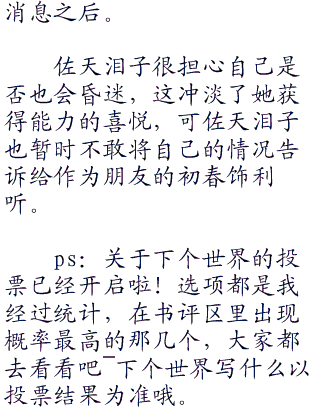 消息之后。
佐天泪子很担心自己是
否也会昏迷，这冲淡了她获
得能力的喜悦，可佐天泪子
也暂时不敢将自己的情况告
诉给作为朋友的初春饰利
听。
ps：关于下个世界的投
票已经开启啦！选项都是我
经过统计，在书评区里出现
概率最高的那几个，大家都
去看看吧~下个世界写什么以
投票结果为准哦。